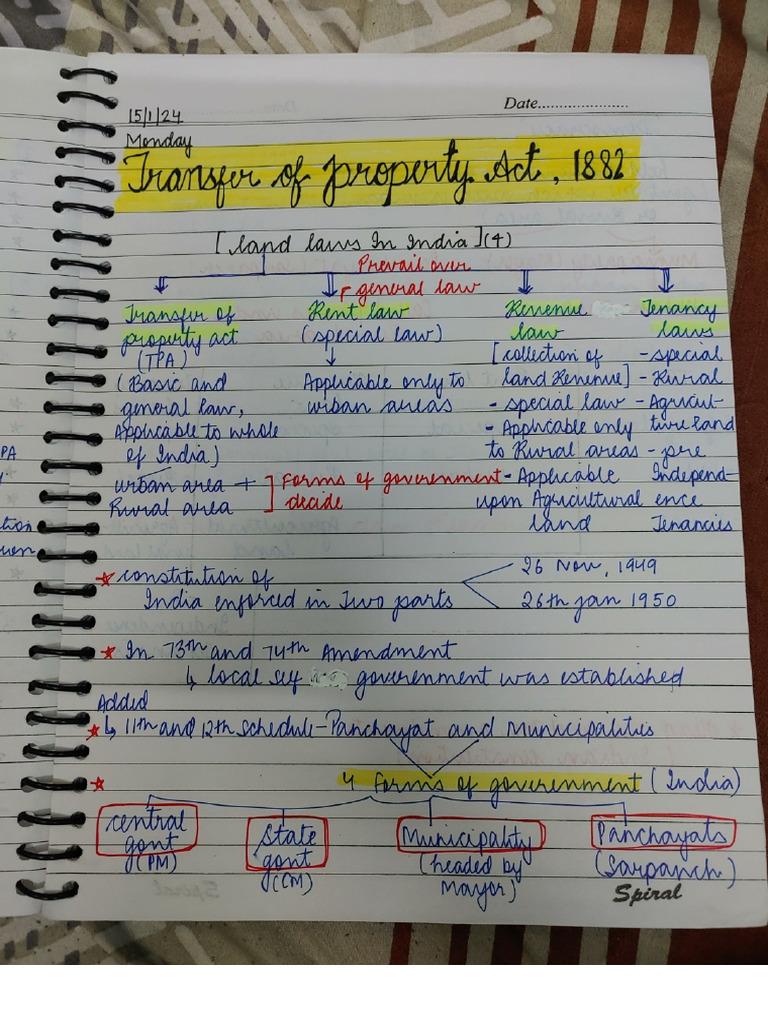 Date.....................
15/1/24
Monday
Transfer of property Act, 1882
[land laws In India](4)
Prevail over
general law
Transfer of
property act
(TPA)
(Basic and
general law,
Applicable to whole
of India)
urban area +
Rural area
] Forms of government
decide
Rent law
(special law)
↓
Applicable only to
urban areas
Revenue
law
[collection of
land Revenue]
- special law
- Applicable only
to Rural areas
- Applicable
upon Agricultural
land
Tenancy
laws
- special
- Rural
- Agricul-
ture land
- pre
Independ-
ence
Tenancies
* constitution of
India enforced in Two parts
26 Nov, 1949
26th jan 1950
* In 73th and 74th Amendment
↳ local self government was established
Added
* ↳ 11th and 12th schedule - Panchayat and Municipalities
*
4 forms of government (India)
central
govt
(PM)
State
govt
(CM)
Municipality
(headed by
Mayor)
Panchayats
(Sarpanch)
Spiral
PA
tion